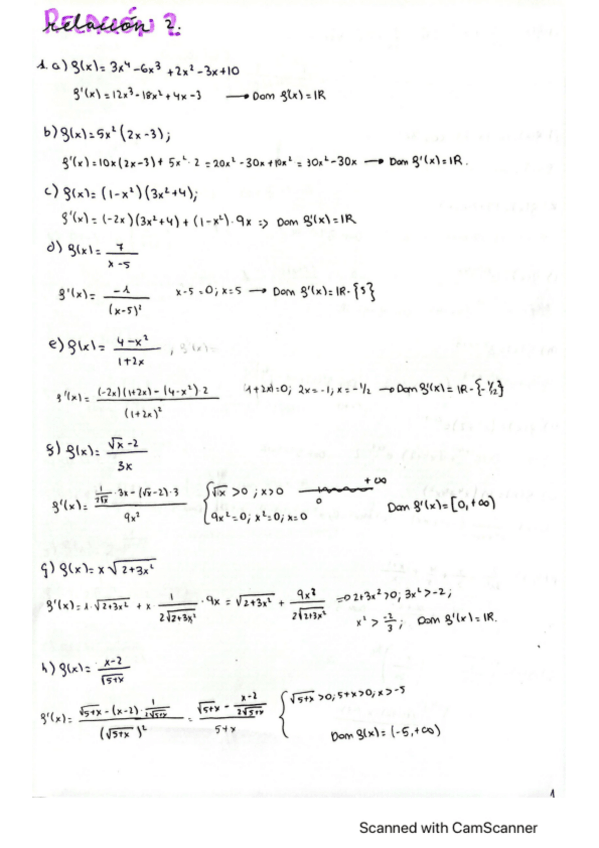 RELACIÓN 2
relación 2.
1. a) f(x) = 3x⁴ - 6x³ + 2x² - 3x + 10
f'(x) = 12x³ - 18x² + 4x - 3 → Dom f'(x) = IR
b) f(x) = 5x² (2x - 3);
f'(x) = 10x (2x - 3) + 5x² · 2 = 20x² - 30x + 10x² = 30x² - 30x → Dom f'(x) = IR.
c) f(x) = (1 - x²) (3x² + 4);
f'(x) = (-2x) (3x² + 4) + (1 - x²) · 9x => Dom f'(x) = IR
d) f(x) = 7 / (x - 5)
f'(x) = -1 / (x - 5)² x - 5 = 0; x = 5 → Dom f'(x) = IR - {5}
e) f(x) = (4 - x²) / (1 + 2x)
f'(x) = ((-2x) (1 + 2x) - (4 - x²) · 2) / (1 + 2x)² 1 + 2x = 0; 2x = -1; x = -1/2 → Dom f'(x) = IR - {-1/2}
f) f(x) = (√x - 2) / 3x
f'(x) = (1/(2√x) · 3x - (√x - 2) · 3) / 9x² { √x > 0; x > 0 0 +∞
9x² = 0; x² = 0; x = 0 Dom f'(x) = [0, +∞)
g) f(x) = x √(2 + 3x²)
f'(x) = 1 · √(2 + 3x²) + x · 1/(2√(2 + 3x²)) · 9x = √(2 + 3x²) + 9x²/(2√(2 + 3x²)) => 2 + 3x² > 0; 3x² > -2;
x² > -2/3; Dom f'(x) = IR.
h) f(x) = (x - 2) / √(5 + x)
f'(x) = (√(5 + x) - (x - 2) · 1/(2√(5 + x))) / (√(5 + x))² = (√(5 + x) - (x - 2)/(2√(5 + x))) / (5 + x) { √(5 + x) > 0; 5 + x > 0; x > -5
Dom f(x) = (-5, +∞)
1
Scanned with CamScanner